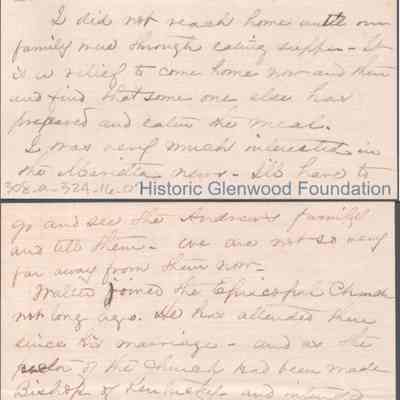 I did not reach home until our
family was through eating supper - It
is a relief to come home now and then
and find that some one else has
prepared and eaten the meal.
I was very much interested in
the Marietta news - I'll have to
398.a-324-16.0
Historic Glenwood Foundation
go and see the Andrews family
and tell them - we are not so very
far away from them now -
Walter joined the Episcopal Church
not long ago. He has attended there
since his marriage - and as the
rector of the Church had been made
Bishop of Kentucky - and intended